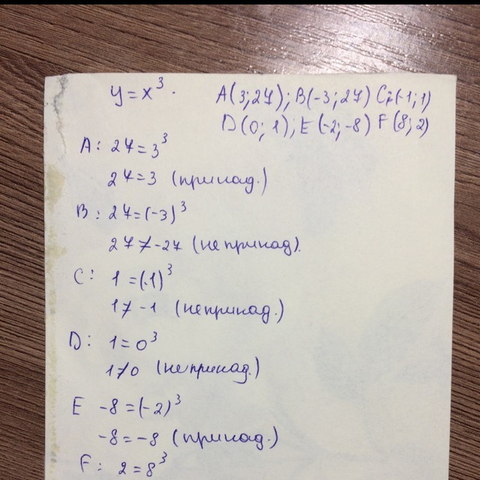 y=x³. A(3;27); B(-3;27) C(-1;1)
D(0;1); E(-2;-8) F(8;2)
A: 27=3³
27=3 (принад.)
B: 27=(-3)³
27≠-27 (не принад).
C: 1=(-1)³
1≠-1 (не принад.)
D: 1=0³
1≠0 (не принад.)
E -8=(-2)³
-8=-8 (принад.)
F: 2=8³